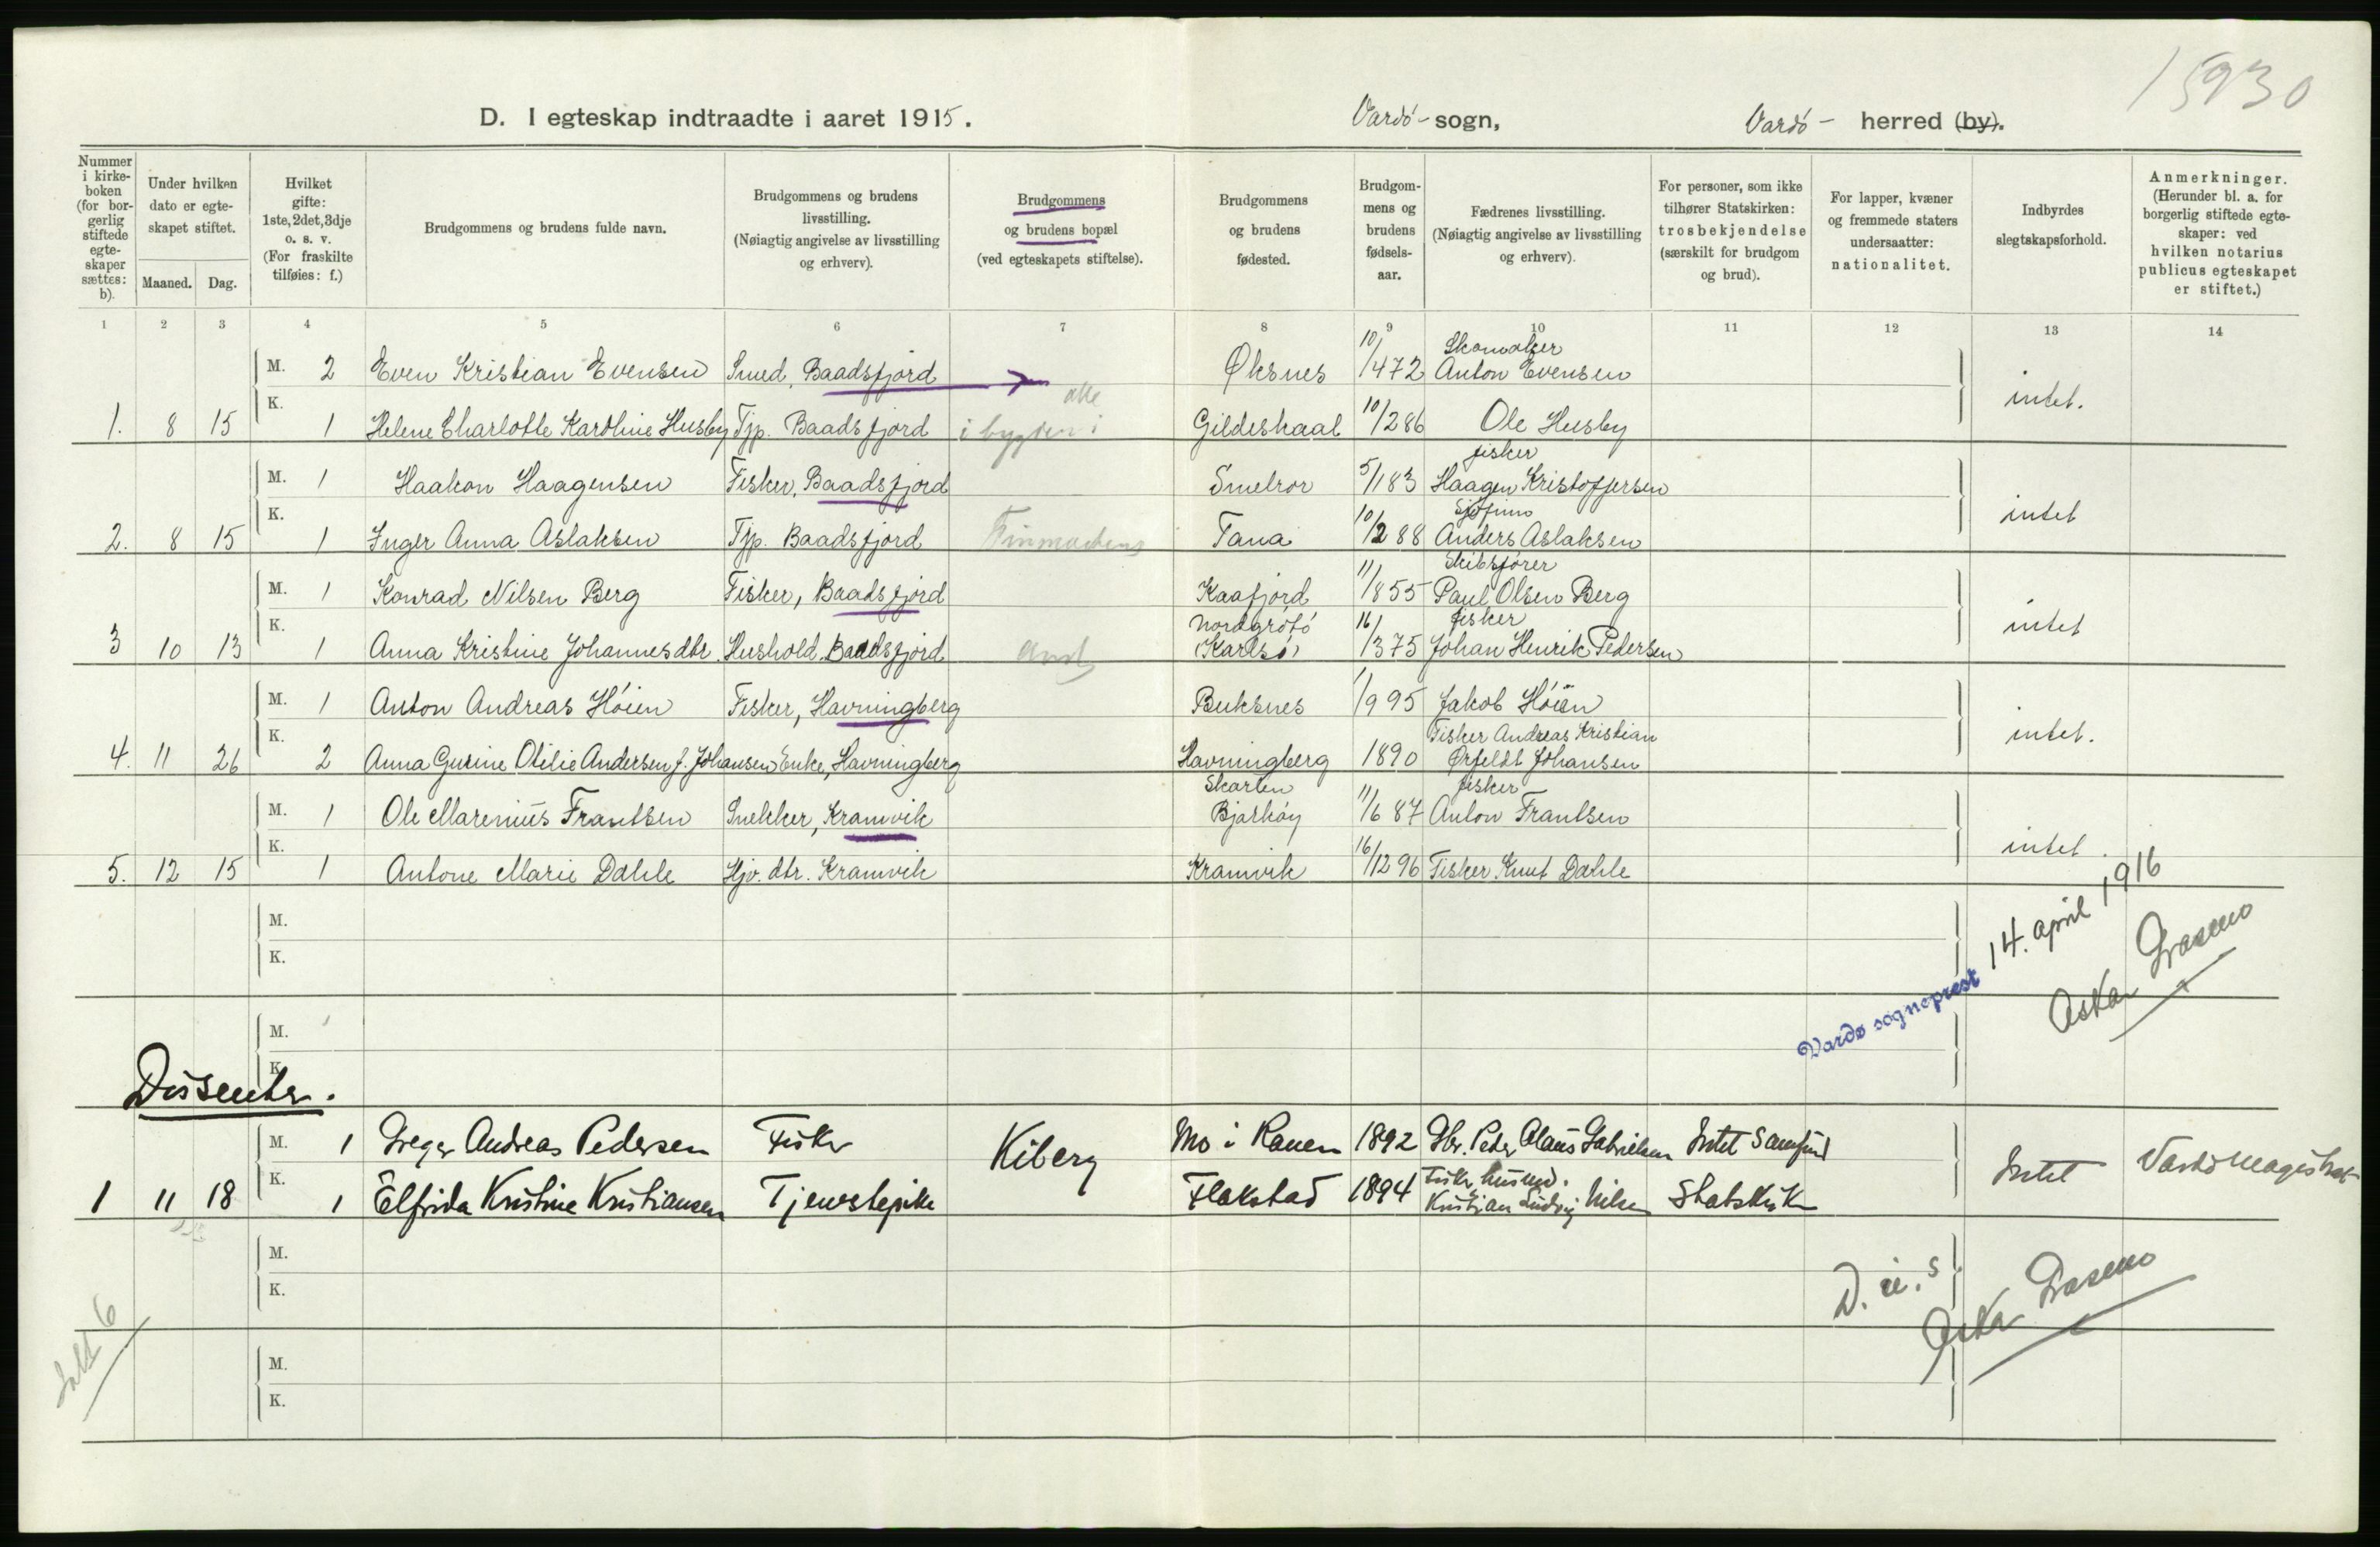 15930
D. I egteskap indtraadte i aaret 1915. Vardö- sogn, Vardö- herred (by).
Nummer i kirkeboken (for borgerlig stiftede egteskaper sættes: b).
Under hvilken dato er egteskapet stiftet.
Maaned. Dag.
Hvilket gifte: 1ste, 2det, 3dje o. s. v. (For fraskilte tilføies: f.)
Brudgommens og brudens fulde navn.
Brudgommens og brudens livsstilling. (Nøiagtig angivelse av livsstilling og erhverv).
Brudgommens og brudens bopæl (ved egteskapets stiftelse).
Brudgommens og brudens fødested.
Brudgommens og brudens fødselsaar.
Fædrenes livsstilling. (Nøiagtig angivelse av livsstilling og erhverv).
For personer, som ikke tilhører Statskirken: trosbekjendelse (særskilt for brudgom og brud).
For lapper, kvæner og fremmede staters undersaatter: nationalitet.
Indbyrdes slegtskapsforhold.
Anmerkninger. (Herunder bl. a. for borgerlig stiftede egteskaper: ved hvilken notarius publicus egteskapet er stiftet.)
1 2 3 4 5 6 7 8 9 10 11 12 13 14
M. 2 Even Kristian Evensen Smed, Baadsfjord Øksnes 10/4 72 Skomaker Anton Evensen
alle
1. 8 15 K. 1 Helene Charlotte Karoline Husby Tjp. Baadsfjord i bygden i Gildeskaal 10/2 86 Ole Husby intet.
M. 1 Haakon Haagensen Fisker, Baadsfjord Smelror 5/1 83 fisker Haagen Kristoffersen
2. 8 15 K. 1 Inger Anna Aslaksen Tjp. Baadsfjord Finmarkens Tana 10/2 88 Sjøfinn Anders Aslaksen intet
M. 1 Konrad Nilsen Berg Fisker, Baadsfjord Kaafjord 11/8 55 Skibsfører Paul Olsen Berg
3 10 13 K. 1 Anna Kristine Johannesdtr. Hushold. Baadsfjord amt Nordgrötö (Karlsö) 16/3 75 fisker Johan Henrik Pedersen intet
M. 1 Anton Andreas Höien Fisker, Havningberg Buksnes 1/9 95 Jakob Höien
4. 11 26 K. 2 Anna Gurine Otilie Andersen f. Johansen Enke, Havningberg Havningberg 1890 Fisker Andreas Kristian Ørfeldt Johansen intet.
M. 1 Ole Marenius Frantsen Snekker, Kramvik Skarten Bjarköy 11/6 87 fisker Anton Frantsen
5. 12 15 K. 1 Antone Marie Dahle Hjv. dtr. Kramvik Kramvik 16/12 96 Fisker Knut Dahle intet.
M.
K.
Vardø sogneprest 14. april 1916
Askar Grasmo
M.
K.
Dissenter.
M. 1 Greger Andreas Pedersen Fisker Mo i Ranen 1892 Gbr. Peder Olaus Gabrielsen Intet samfund
1 11 18 K. 1 Elfrida Kristine Kristiansen Tjenstepike Kiberg Flakstad 1894 Fisker husmd. Kristian Ludvig Nilsen Statskirk Intet Vardö magistrat
M.
K.
D. u. s.
Askar Grasmo
Ialt 6
M.
K.